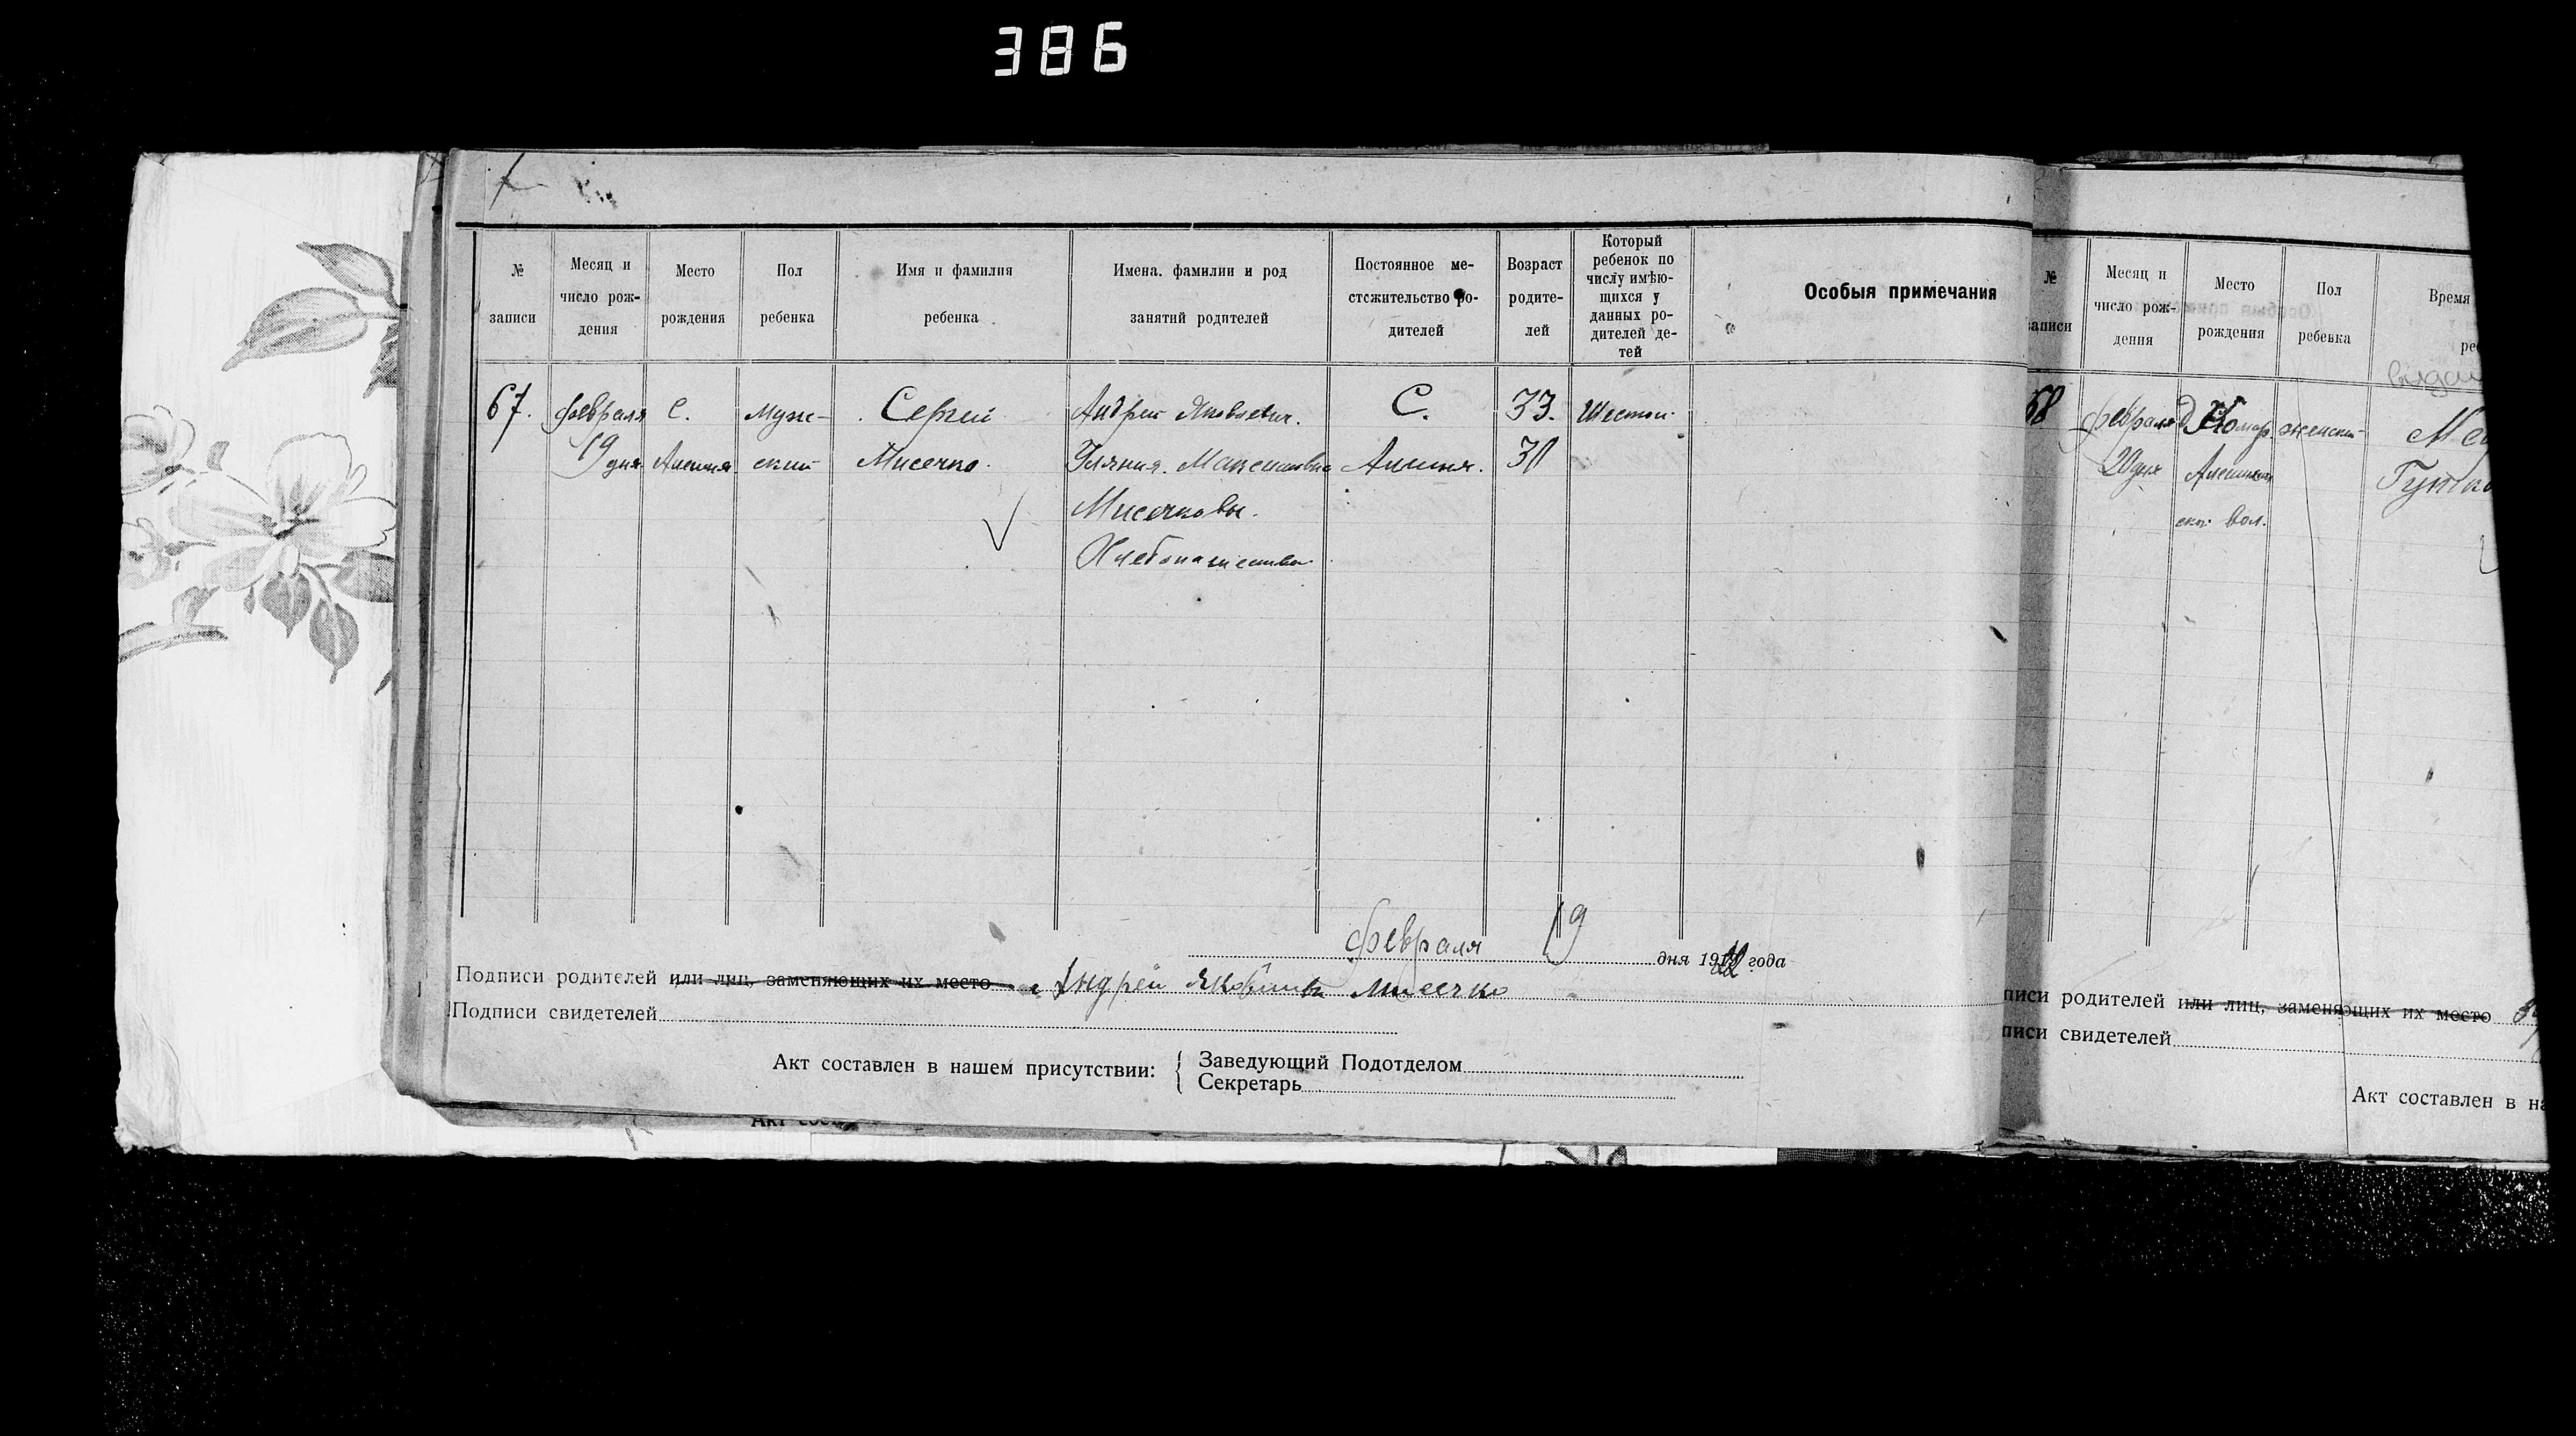 386
№ записи
Месяц и число рож- дения
Место рождения
Пол ребенка
Имя и фамилия ребенка
Имена. фамилии и род занятий родителей
Постоянное ме- стожительство ро- дителей
Возраст родите- лей
Который ребенок по числу имѣю- щихся у данных ро- дителей де- тей
Особыя примечания
67. февраля с. муж- Сергей Андрей Яковлевич. С. 33. Шестой.
19 дня ский Мисечко. Максимовна 30
Мисечковы.
Хлебопашество
февраля 19 дня 19 года
Подписи родителей или лиц, заменяющих их место Андрей Мисечко
Подписи свидетелей
Акт составлен в нашем присутствии:
Заведующий Подотделом
Секретарь
№ записи
Месяц и число рож- дения
Место рождения
Пол ребенка
Время
68 февраля женски-
20 дня
ск. вол.
писи родителей или лиц, заменяющих их место
писи свидетелей
Акт составлен в на